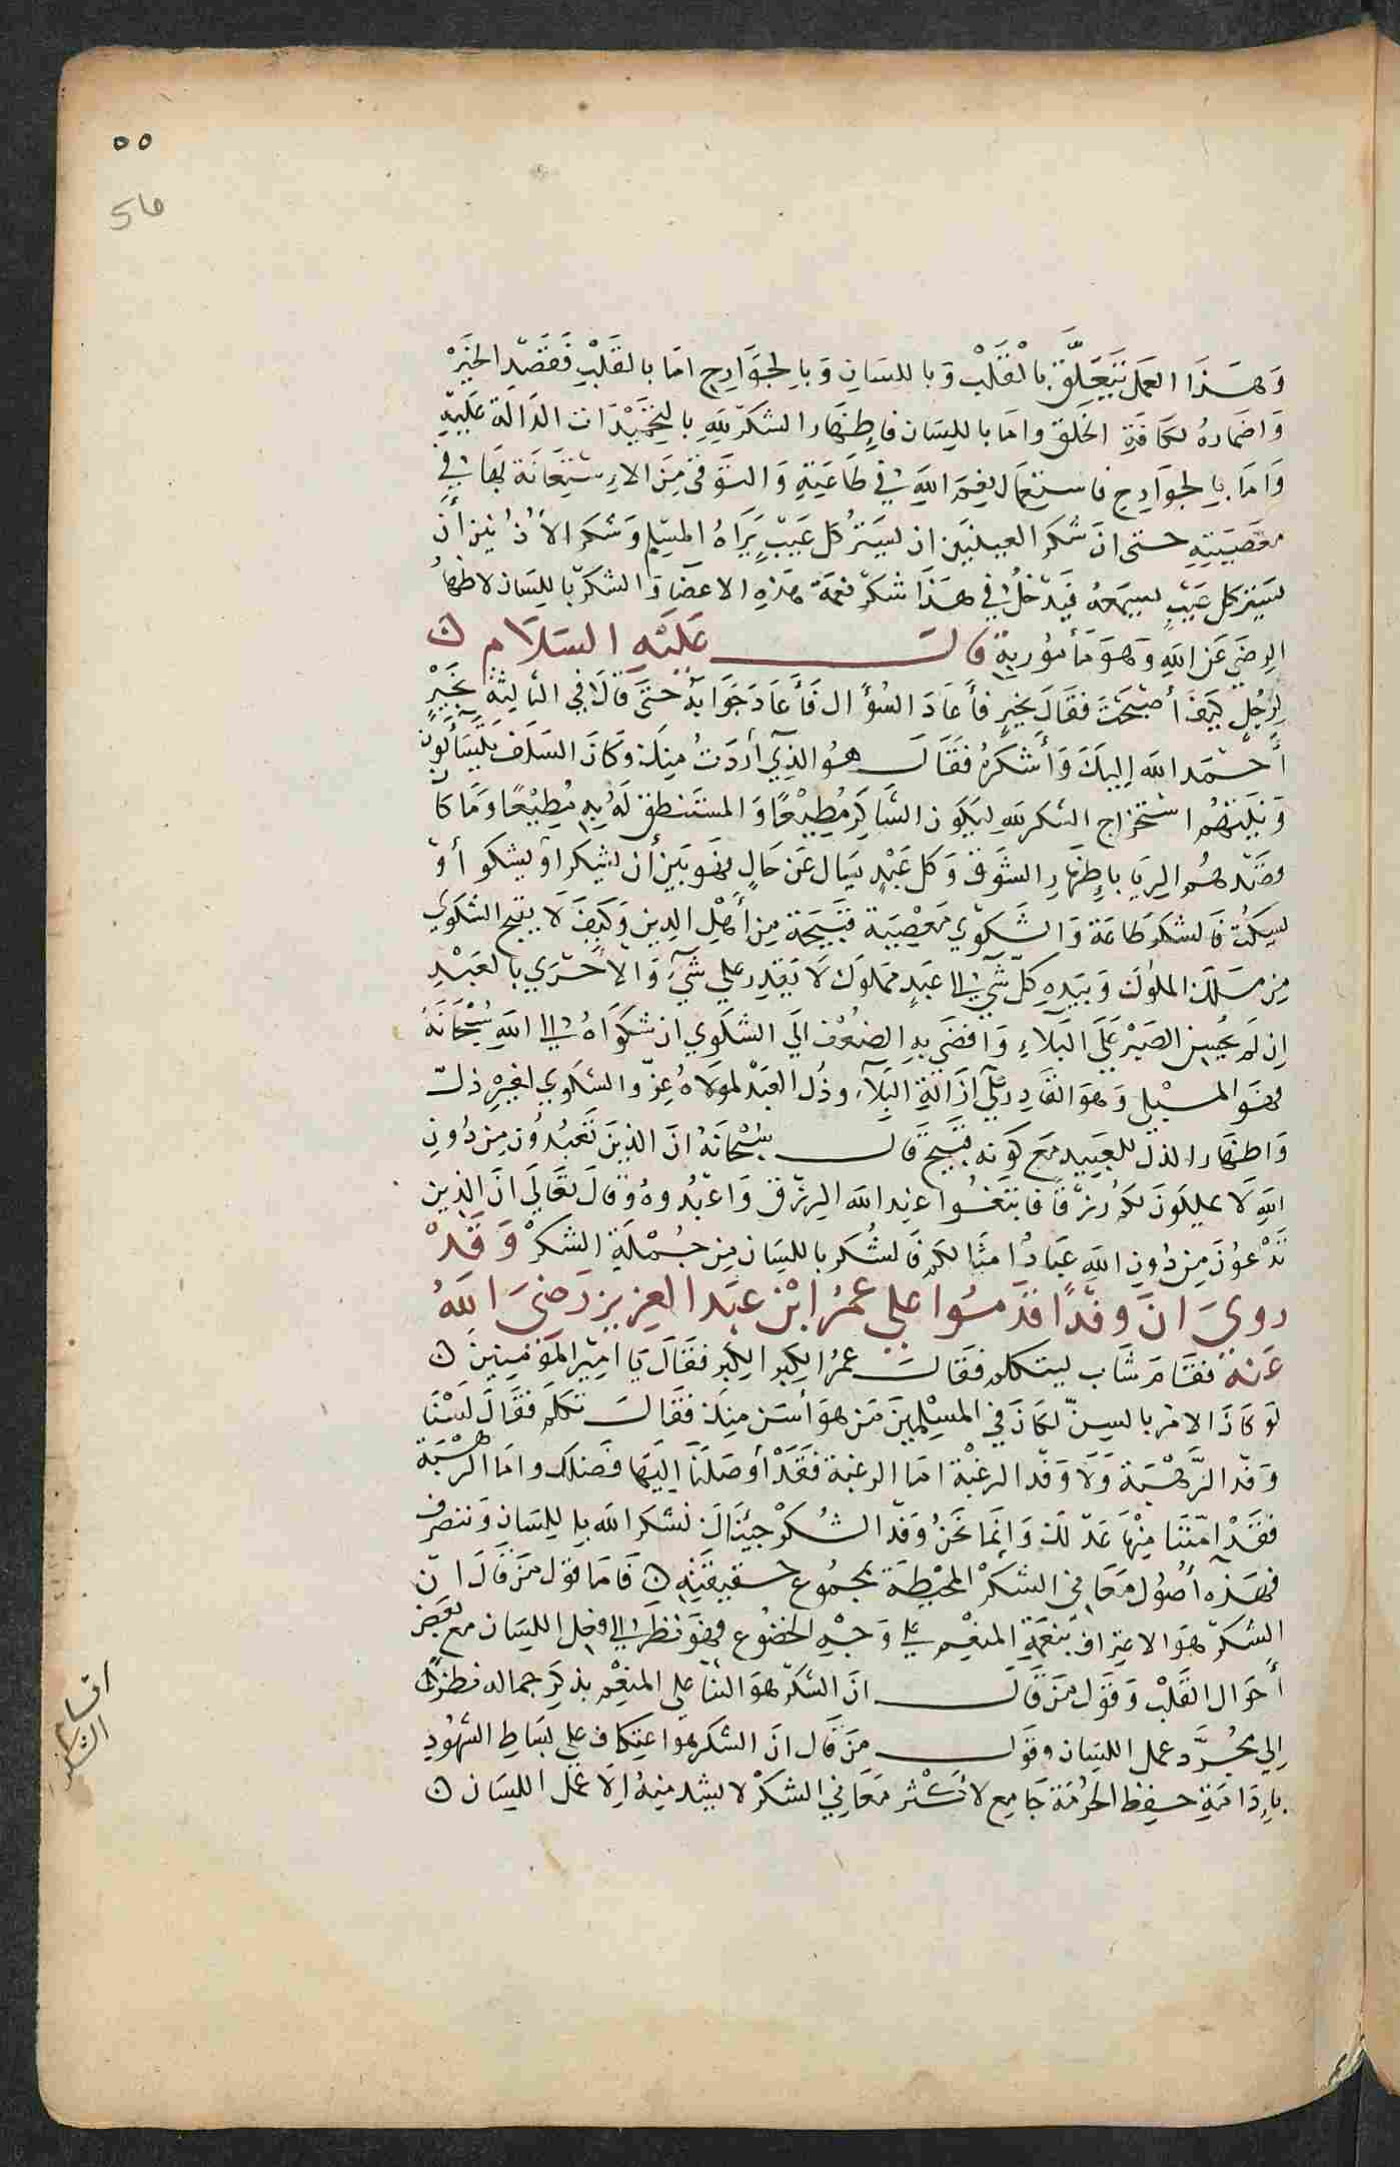 ٥٥
وَهَذَا العَمَل يَتَعَلَّق بالْقَلْب وَباللسَانِ وَبالجوَارِح امَا بالقَلْبِ فَقَصْد الخَيْرْ
وَاضمَارهُ لكَافَةِ الخَلق وامَا باللِسَان فاظهَار الشكر للهِ بالتحْميْدَات الدَالَة عَلَيْهِ
وَامَا بالجوَارِح فاستِعمَال نِعَم اللهِ في طَاعَتِهِ وَالتوَقي مِنَ الاِسْتِعَانَة بهَا في
معْصِيَتِهِ حتى انَ شكر العينَين ان يستُر كل عَيبٍ يَرَاهُ لمسْلِم وَشكر الأذُنين أن
يَستر كل عَيْبٍ يسمَعهُ فيَدْخُل في هَذَا شكر نعمَة هَذهِ الاعضَا وَالشكر باللِسَان لاظهَار
الرِضَي عَن اللهِ وَهوَ مَأمُور بهِ قال عَليْهِ السَلَام
لِرَجُلٍ كيفَ أصْبَحْتَ فقَالَ بخَيرٍ فأعَادَ السُؤَال فَأعَادَ جَوَابَهُ حتى قالَ في الثالِثَة بخَيْرٍ
أحْمَد الله إليكَ وَأشكرهُ فقَال هوَ الذِي أرَدتُ مِنكَ وَكانَ السَلف يتَسَألُون
وَنيتهُم استخرَاج الشكر للهِ ليَكوُن الشَاكِر مُطِيْعًا وَالمستَنطق لَهُ بهِ مُطِيْعًا وَمَا كَان
قصْدهُم الرِيَا بإظهَارِ الشَوْق وَكل عَبْدٍ يسَال عَن حَالٍ فهوَ بَين أن يشكر او يشكو أوْ
يَسكت فالشكر طاعَة وَالشكوَي مَعْصِيَة قبيْحَة مِن أهْلِ الدِين وَكيفَ لَا يقبح الشكوَي
مِن مَلك الملوُك وَبيَدِهِ كلّ شَيْ الي عَبدٍ مَملوُك لَا يَقدِر علي شَيْ وَالأحْرَي بالعَبْدِ
ان لَم يحُسن الصَبْر عَلَي البَلاءِ وَافضَي بهِ الضعْف الَي الشكوَي ان شكوَاهُ الي اللهِ سُبْحَانَهُ
فهوَ المبلي وَهوَ القادِر علَي ازَالَةِ البَلَاء وذُل العَبْد لموْلَاهُ عِزّ والشكوَي لغيرِهِ ذلّ
وَاظهَار الذل للعَبيد مَع كوْنه قبيْح قَال سُبْحَانهُ انَ الذينَ تَعْبُدُون مِن دُونِ
اللهِ لَا يملِكوُنَ لكم رزقًا فابتَغُوا عِند الله الرِزق وَاعْبُدوهُ وَقالَ تعَالي انَ الذِين
تَدْعوُنَ مِن دُونِ اللهِ عِبَادٌ امثَالكم فالشُكر باللسَان مِن جُمْلَةِ الشكرْ وَقَدْ
رويَ انَ وفدًا قدمُوا علي عمرُ ابْن عبَد العَزيز رَضيَ اللهُ
عَنهُ فقامَ شَاب ليتكلم فقَال عمرُ الكِبَر الكِبَر فقَالَ يَا امِيْر الموْمِنِينَ
لوْ كانَ الامر بالسِنّ لكانَ في المسْلِمِينَ مَن هوَ أسَن مِنكَ فقَالَ تكلم فقَالَ لسْنَا
وَفد الرَهْبَة وَلَا وَفد الرغبَة امَا الرغبَة فقَدْ أوْصَلَنَا اليهَا فضلك وامَا الرهْبَة
فقَدْ امّنَنَا مِنْهَا عَدْلك وَانِمَا نحَنُ وَفد الشُكر جِئنَاك نشكر الله باللِسَان وَننصَرف
فهَذهِ أصُول مَعَاني الشكر المحيْطَة بمجمُوع حقيقتِهِ فَامَا قول مَن قالَ انّ
الشكر هوَ الاعترَاف بنعْمَةِ المنْعِم علي وَجْهِ الخضُوع فهوَ نظَر الي فعل اللِسَان مع بعَض
أحَوَال القَلْب وَقوْل مَن قَال انَ الشكر هوَ الثنَا علي المنْعِم بذكر جمالهِ فنظر
الي مجُرَّد عمل اللسَان وقوْل مَن قَال انَ الشكر هوَ اعتِكاف علي بسَاطِ الشهُودِ
بإدَامَةِ حفظ الحرْمَة جَامِع لأكْثر مَعَاني الشكر لا يشذ مِنهُ إلَا عمل اللِسَان
اقسام
الشكر